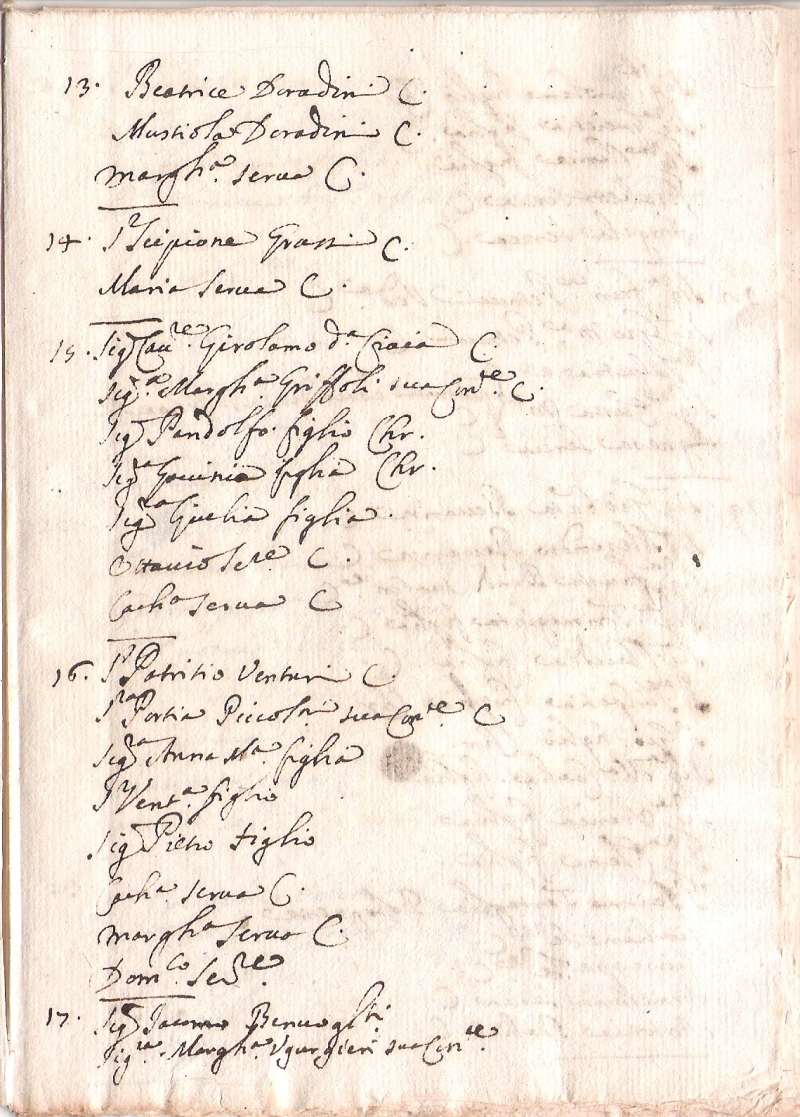 13. Beatrice Doradini C.
Mustiola Doradini C.
Margh.a serva C.
14. Sr Scipione Grassi C.
Maria Serva C.
15. Sig.r Cau.re Girolamo d.a Ciaia C.
Sig.a Margh.a Griffoli sua Con.te C.
Sig.r Pandolfo figlio Chr.
Sig.a figlia Chr.
Sig.a Giulia figlia.
Ottavio Se.re C.
Cath.a Serua C
16. Sr Patritio Venturi C
S.ra Portia Piccol.ni sua Con.te C
Sig.ra Anna M.a figlia
Sr Vent.a figlio
Sig.r Pietro figlio
Cath.a serua C.
Margh.a Serua C.
Dom.co Se.re.
17. Sig.r Iacomo Benuogl.ti
Sig.ra Margh.a Vgurgieri sua Con.te